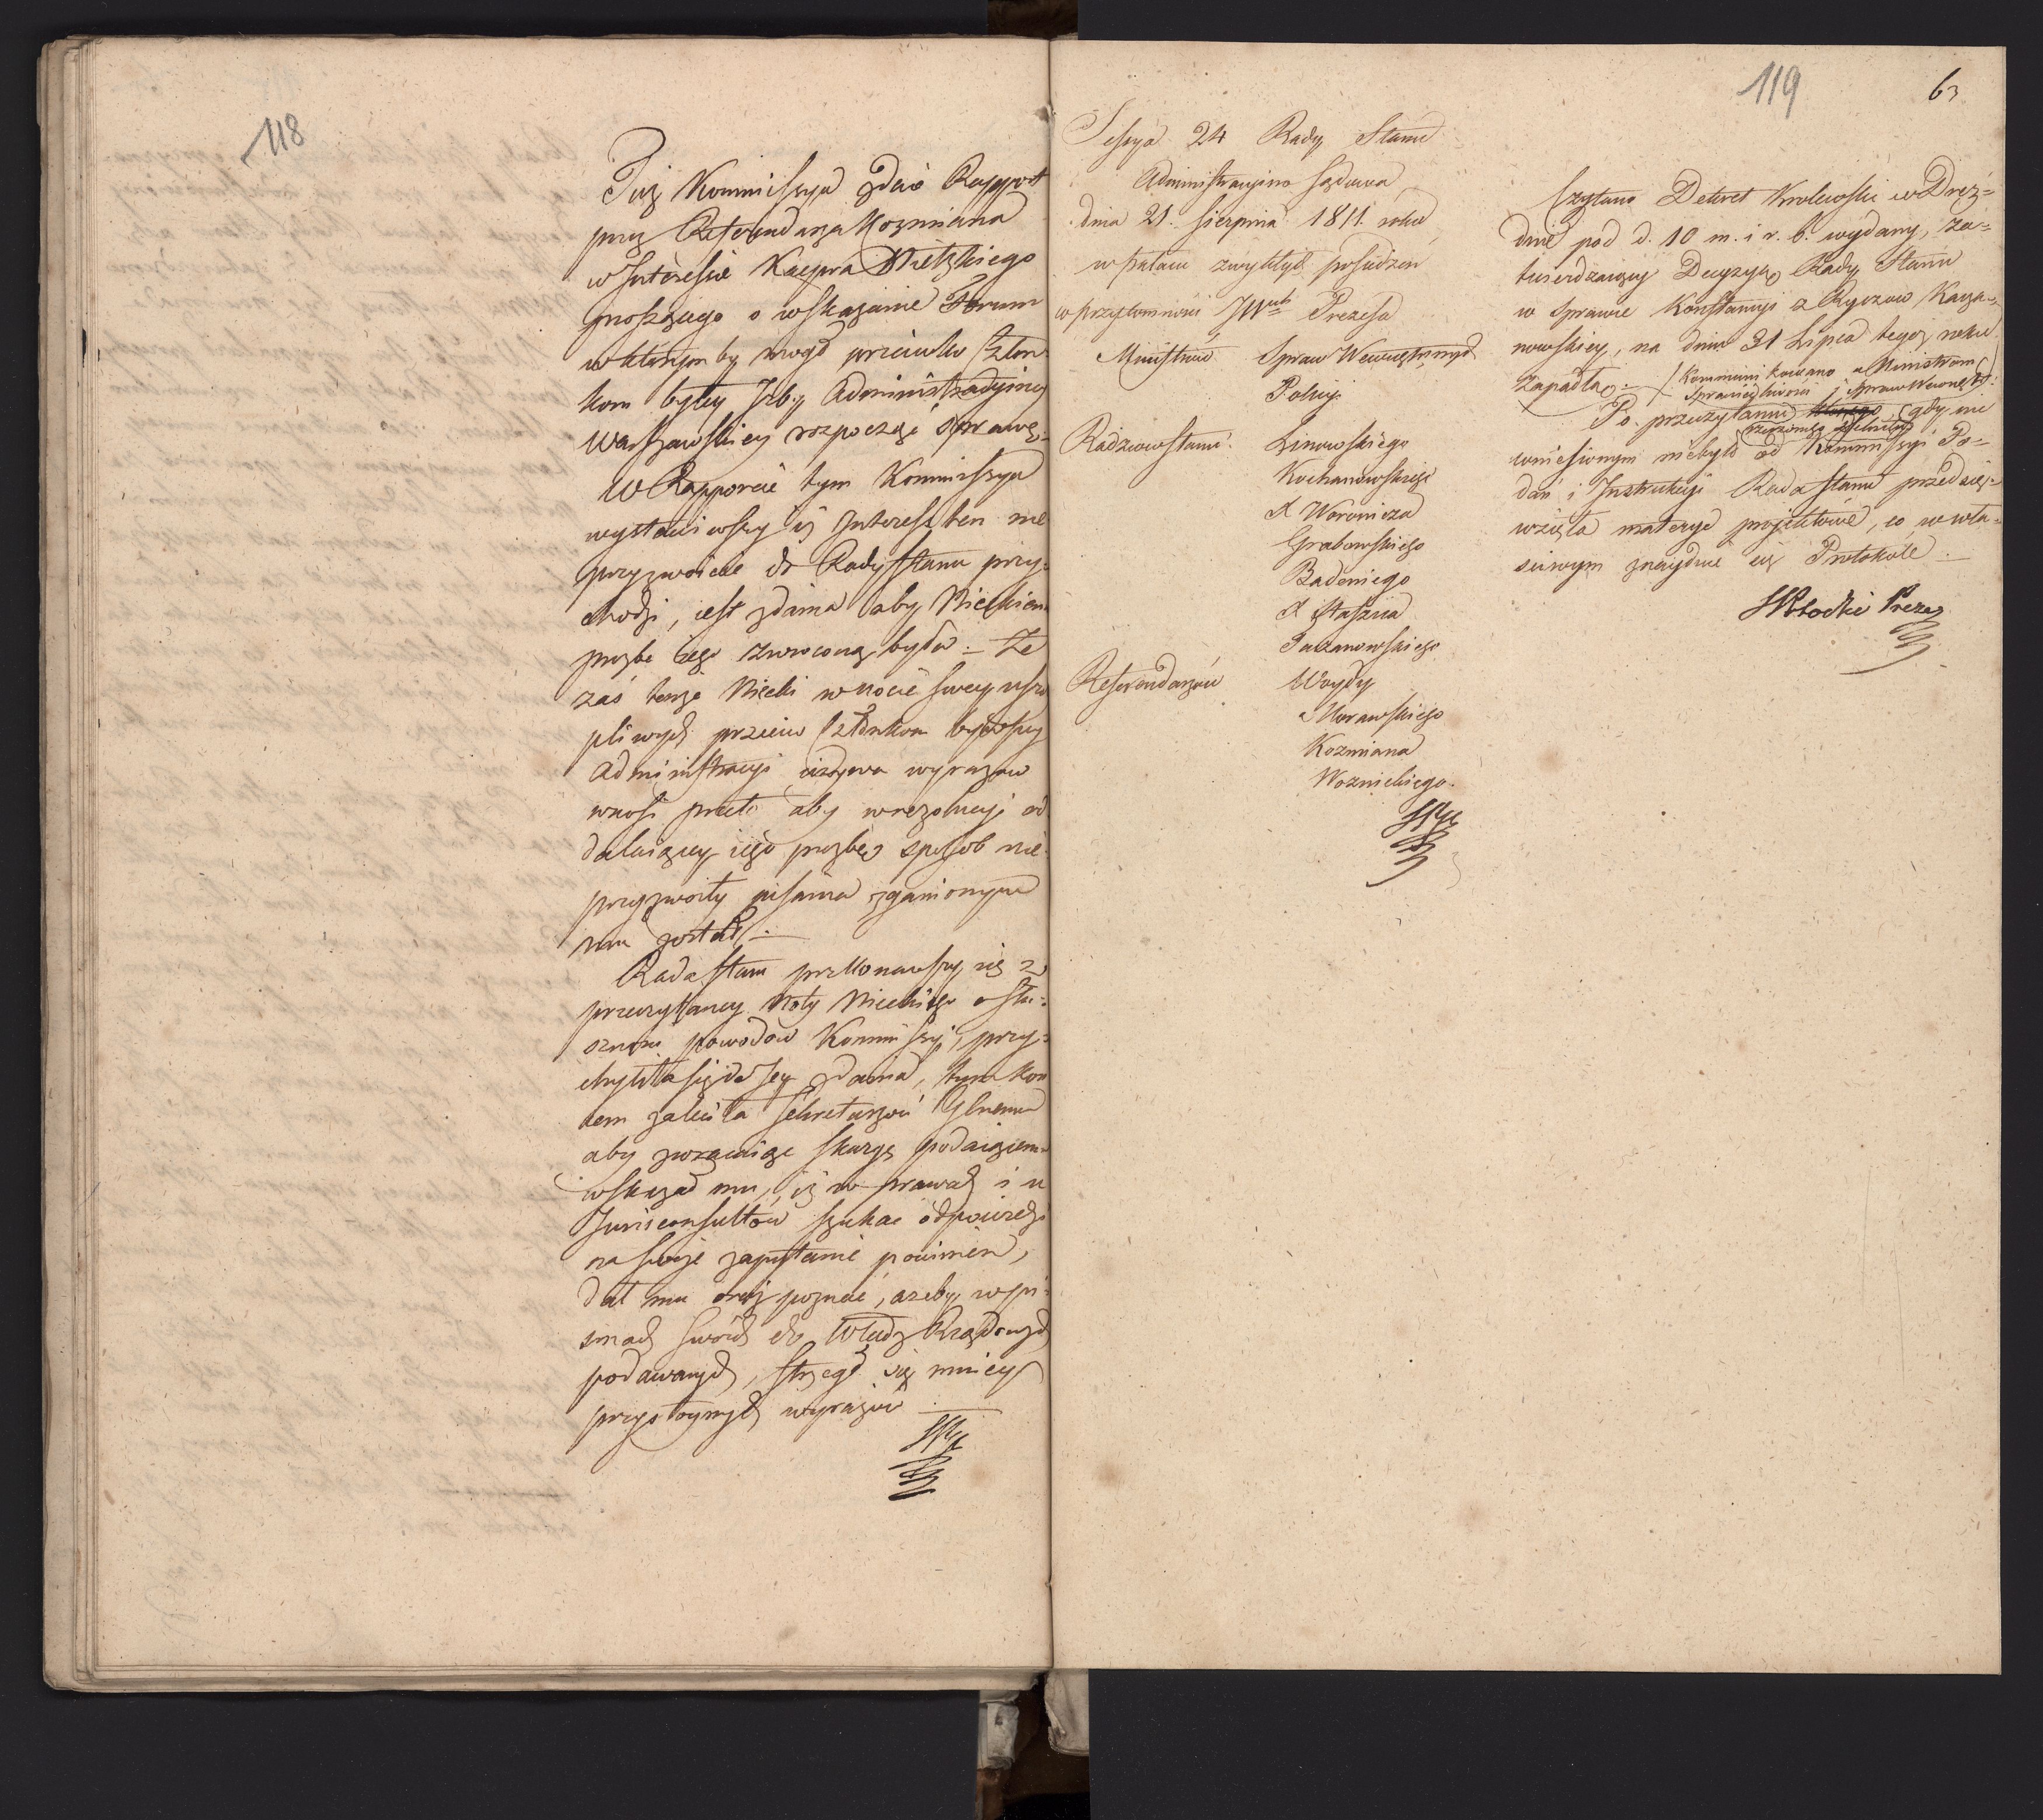 118
Taż Kommissya zdaie Rapport
przez Referendarza Kozmiana
w Interesie Kacpra Nieckiego
proszącego o wskazanie Forum
w którym by mogł przeciwko Człon
kom byłey Izby Administracyiney
Warszawskiey rozpocząć sprawę.
W Rapporcie tym Kommissya
wystawiwszy iż Interes ten nie
przyzwoicie do Rady Stanu przy-
chodzi, iest zdania aby Nieckiemu
prozba iego zwroconą była. Ze
zaś tenże Niecki w nocie swey uszcz
pliwych przeciw Członkom bywszey
Administracyi używa wyrazow
wnosi przeto aby w rezolucyi od
dalaiącey iego prozbę sposob nie-
przyzwoity pisania zganionym
mu został.
Rada Stanu przekonawszy się z
przeczytaney Noty Nieckiego o słu-
szności powodow Kommissyi, przy-
chyliła się do Jey zdania, tym kon
cem zaleciła Sekretarzowi Glnemu
aby zwracaiąc skargę podaiącemu
wskazał mu, iż w prawach i u
Jurisconsultów szukać odpowiedzi
na swoje zapytanie powinien,
dał mu oraz poznać, ażeby w pi-
smach swoich do Władz Rządowych
podawanych, strzegł się mniey
przystoynych wyrazów

119
63
Sessya 24 Rady Stanu
Administracyino Sądowa
dnia 21. Sierpnia 1811. roku
w pałacu zwykłych posiedzen
w przytomności JW Prezesa
Ministrów Spraw Wewnętrznych
Policyi
Radzcow Stanu Linowskiego
Kochanowskiego
X Woronicza
Grabowskiego
Badeniego
X Staszica
Referendarzów Woydy
Morawskiego
Kozmiana
Woznickiego.

Czytano Dekret Krolewski w Drez-
dnie pod d. 10 m. i r. b. wydany, za-
twierdzaiący Decyzyą Rady Stanu
w sprawie Konstancyi z Ryczow Kaza-
nowskiey, na dniu 31 Lipca tegoż roku
zapadłą. / Kommunikowano Ministrom
Sprawiedliwości i Spraw Wewnętrz:
Po przeczytaniu gdy nic
wniesionym niebyło od Kommissyi Po-
dań i Instrukcyi Rada Stanu przedsię-
wzięła materye projektowe, co w wła-
sciwym znayduie się Protokole.
Prezes